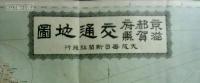 京都府滋賀縣交通地圖
大阪毎日新聞社發行